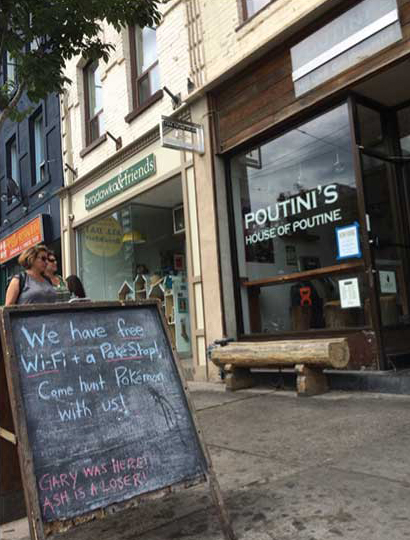 POUTINI'S
HOUSE OF POUTINE
brodawka&friends
We have free
Wi-Fi + a PokéStop!
Come hunt Pokémon
with us!
GARY WAS HERE!
ASH IS A LOSER!